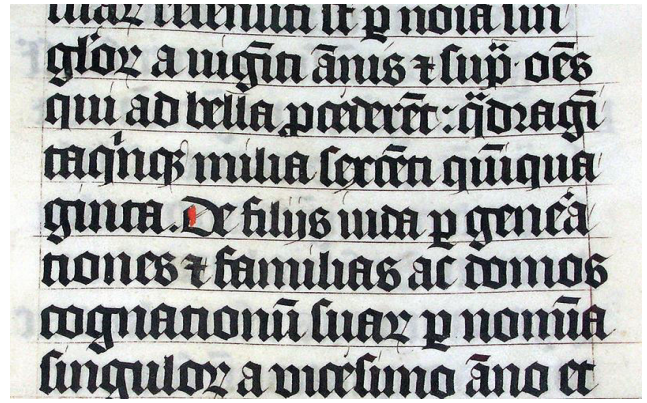 suaꝝ recensiti sūt ꝑ noīa sin
gl'oꝝ a uigīti ānis ⁊ sup̄ oēs
qui ad bella ꝓcederēt: q̈dragī
taqͥnqꝫ milia sexcēti qūiqua
ginta. De filijs iuda ꝑ gene᷒a
tiones ⁊ familias ac domos
cognationū suaꝝ ꝑ nomīa
singuloꝝ a vicesimo āno et